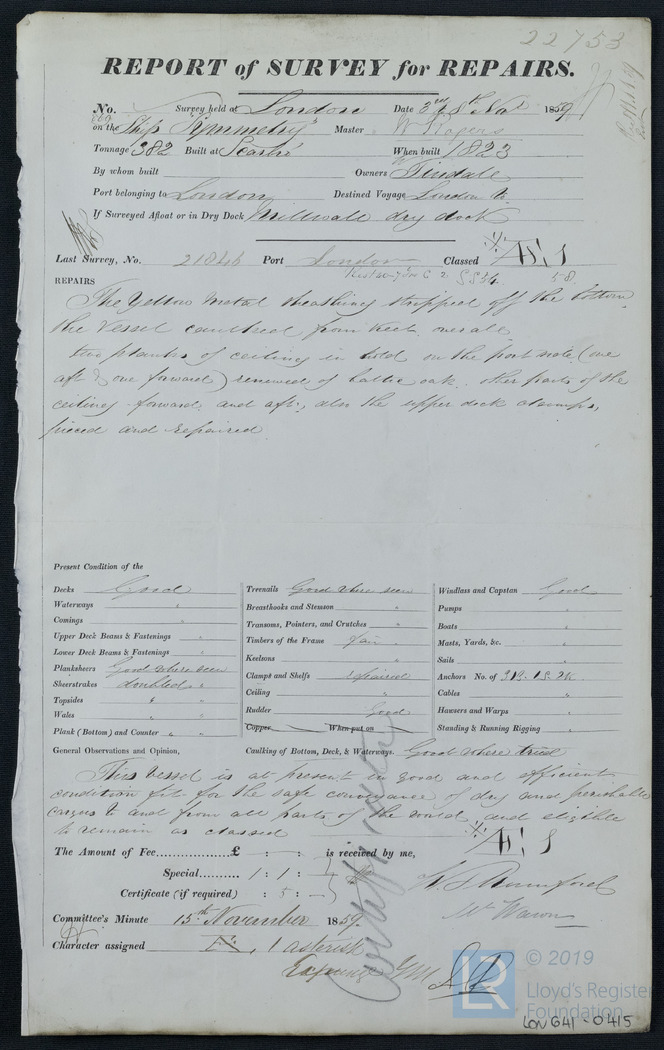 22753
REPORT of SURVEY for REPAIRS.
No. Survey held at London Date 3rd & 8th Nov 1859
on the Ship "Symmetry" Master W Rogers
Tonnage 382 Built at Scarbro' When built 1823
By whom built Owners Tindale
Port belonging to London Destined Voyage London to
If Surveyed Afloat or in Dry Dock Millwall dry dock
Last Survey, No. 21846 Port London Classed Æ 1
58
REPAIRS
The Yellow Metal sheathing stripped off the bottom,
the Vessel caulked from keel over all
two planks of ceiling in hold on the port side (one
aft & one forward) renewed of baltic oak, other parts of the
ceiling forward, and aft, also the upper deck clamps,
pieced and repaired
Present Condition of the
Decks Good Treenails Good where seen Windlass and Capstan Good
Waterways " Breasthooks and Stemson " Pumps "
Comings " Transoms, Pointers, and Crutches " Boats "
Upper Deck Beams & Fastenings " Timbers of the Frame fair Masts, Yards, &c. "
Lower Deck Beams & Fastenings " Keelsons " Sails "
Planksheers Good where seen Clamps and Shelfs repaired Anchors No. of 3 B. 1 S. 2 K.
Sheerstrakes doubled " Ceiling " Cables "
Topsides " " Rudder Good Hawsers and Warps "
Wales " Copper When put on Standing & Running Rigging "
Plank (Bottom) and Counter " "
General Observations and Opinion, Caulking of Bottom, Deck, & Waterways. Good where tried
This Vessel is at present in good and efficient
condition fit for the safe conveyance of dry and perishable
cargoes to and from all parts of the world, and eligible
to remain as classed Æ 1
The Amount of Fee............... £ : - : is received by me,
Special........... 1 : 1 :
Certificate (if required) : 5 : -
W. S. Mumford
Committee's Minute 15th November 1859.
Character assigned 1 asterisk
Expunge
© 2019
LR
Lloyd's Register
Foundation
LON 641-0415